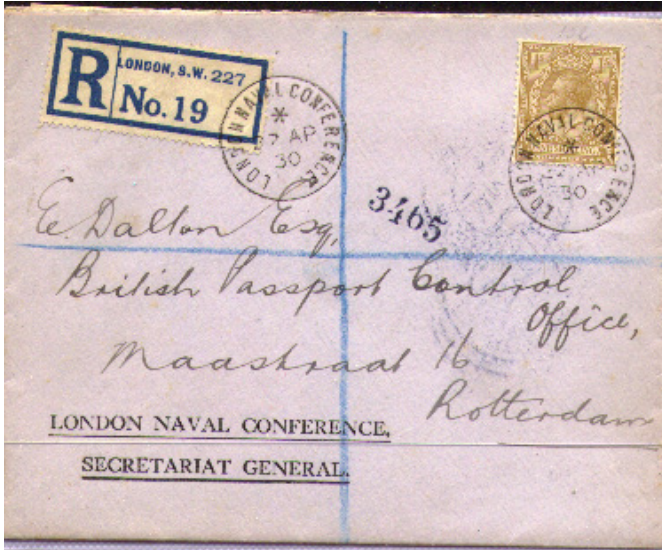 R
LONDON, S.W. 227
No. 19
LONDON NAVAL CONFERENCE
*
AP
30
LONDON NAVAL CONFERENCE
*
30
3465
E Dalton Esq,
British Passport Control
Office,
Maastraat 16
Rotterdam
LONDON NAVAL CONFERENCE,
SECRETARIAT GENERAL.